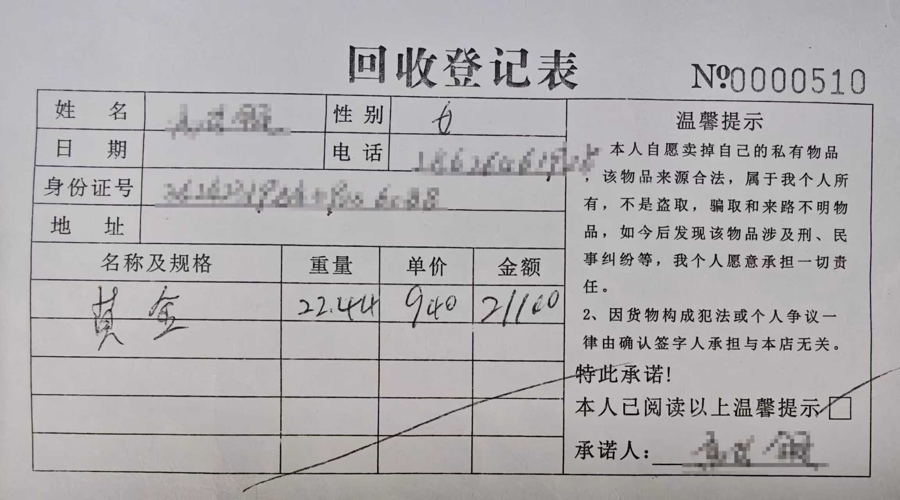 回收登记表
№0000510
姓名 性别 女
日期 电话
身份证号
地址
名称及规格 重量 单价 金额
黄金 22.44 940 21100
温馨提示
本人自愿卖掉自己的私有物品
,该物品来源合法，属于我个人所
有，不是盗取，骗取和来路不明物
品，如今后发现该物品涉及刑、民
事纠纷等，我个人愿意承担一切责
任。
2、因货物构成犯法或个人争议一
律由确认签字人承担与本店无关。
特此承诺!
本人已阅读以上温馨提示□
承诺人：